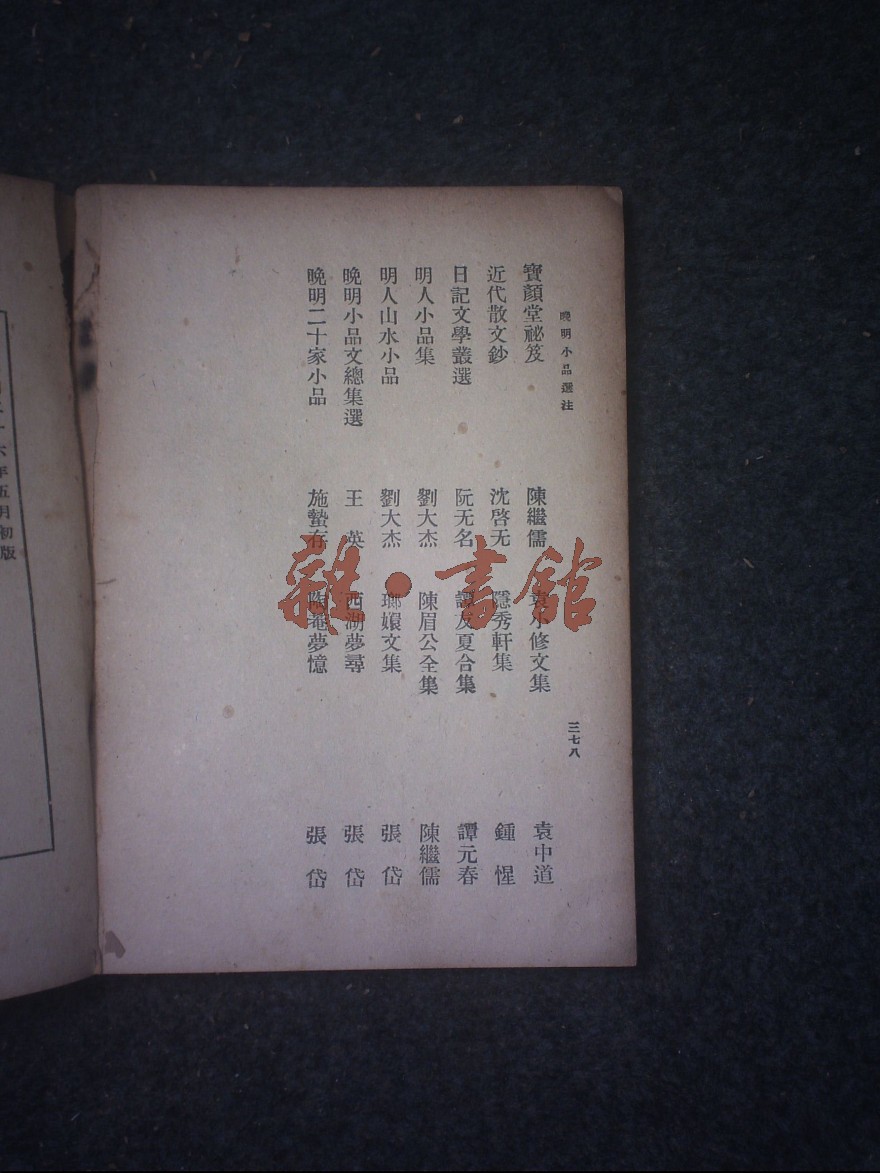 晚明小品選注
三七八
寶顏堂祕笈 陳繼儒
近代散文鈔 沈啓无
日記文學叢選 阮无名
明人小品集 劉大杰
明人山水小品 劉大杰
晚明小品文總集選 王英
晚明二十家小品 施蟄存
袁小修文集 袁中道
隱秀軒集 鍾惺
譚友夏合集 譚元春
陳眉公全集 陳繼儒
瑯嬛文集 張岱
西湖夢尋 張岱
陶菴夢憶 張岱
六年五月初版
雜·書館